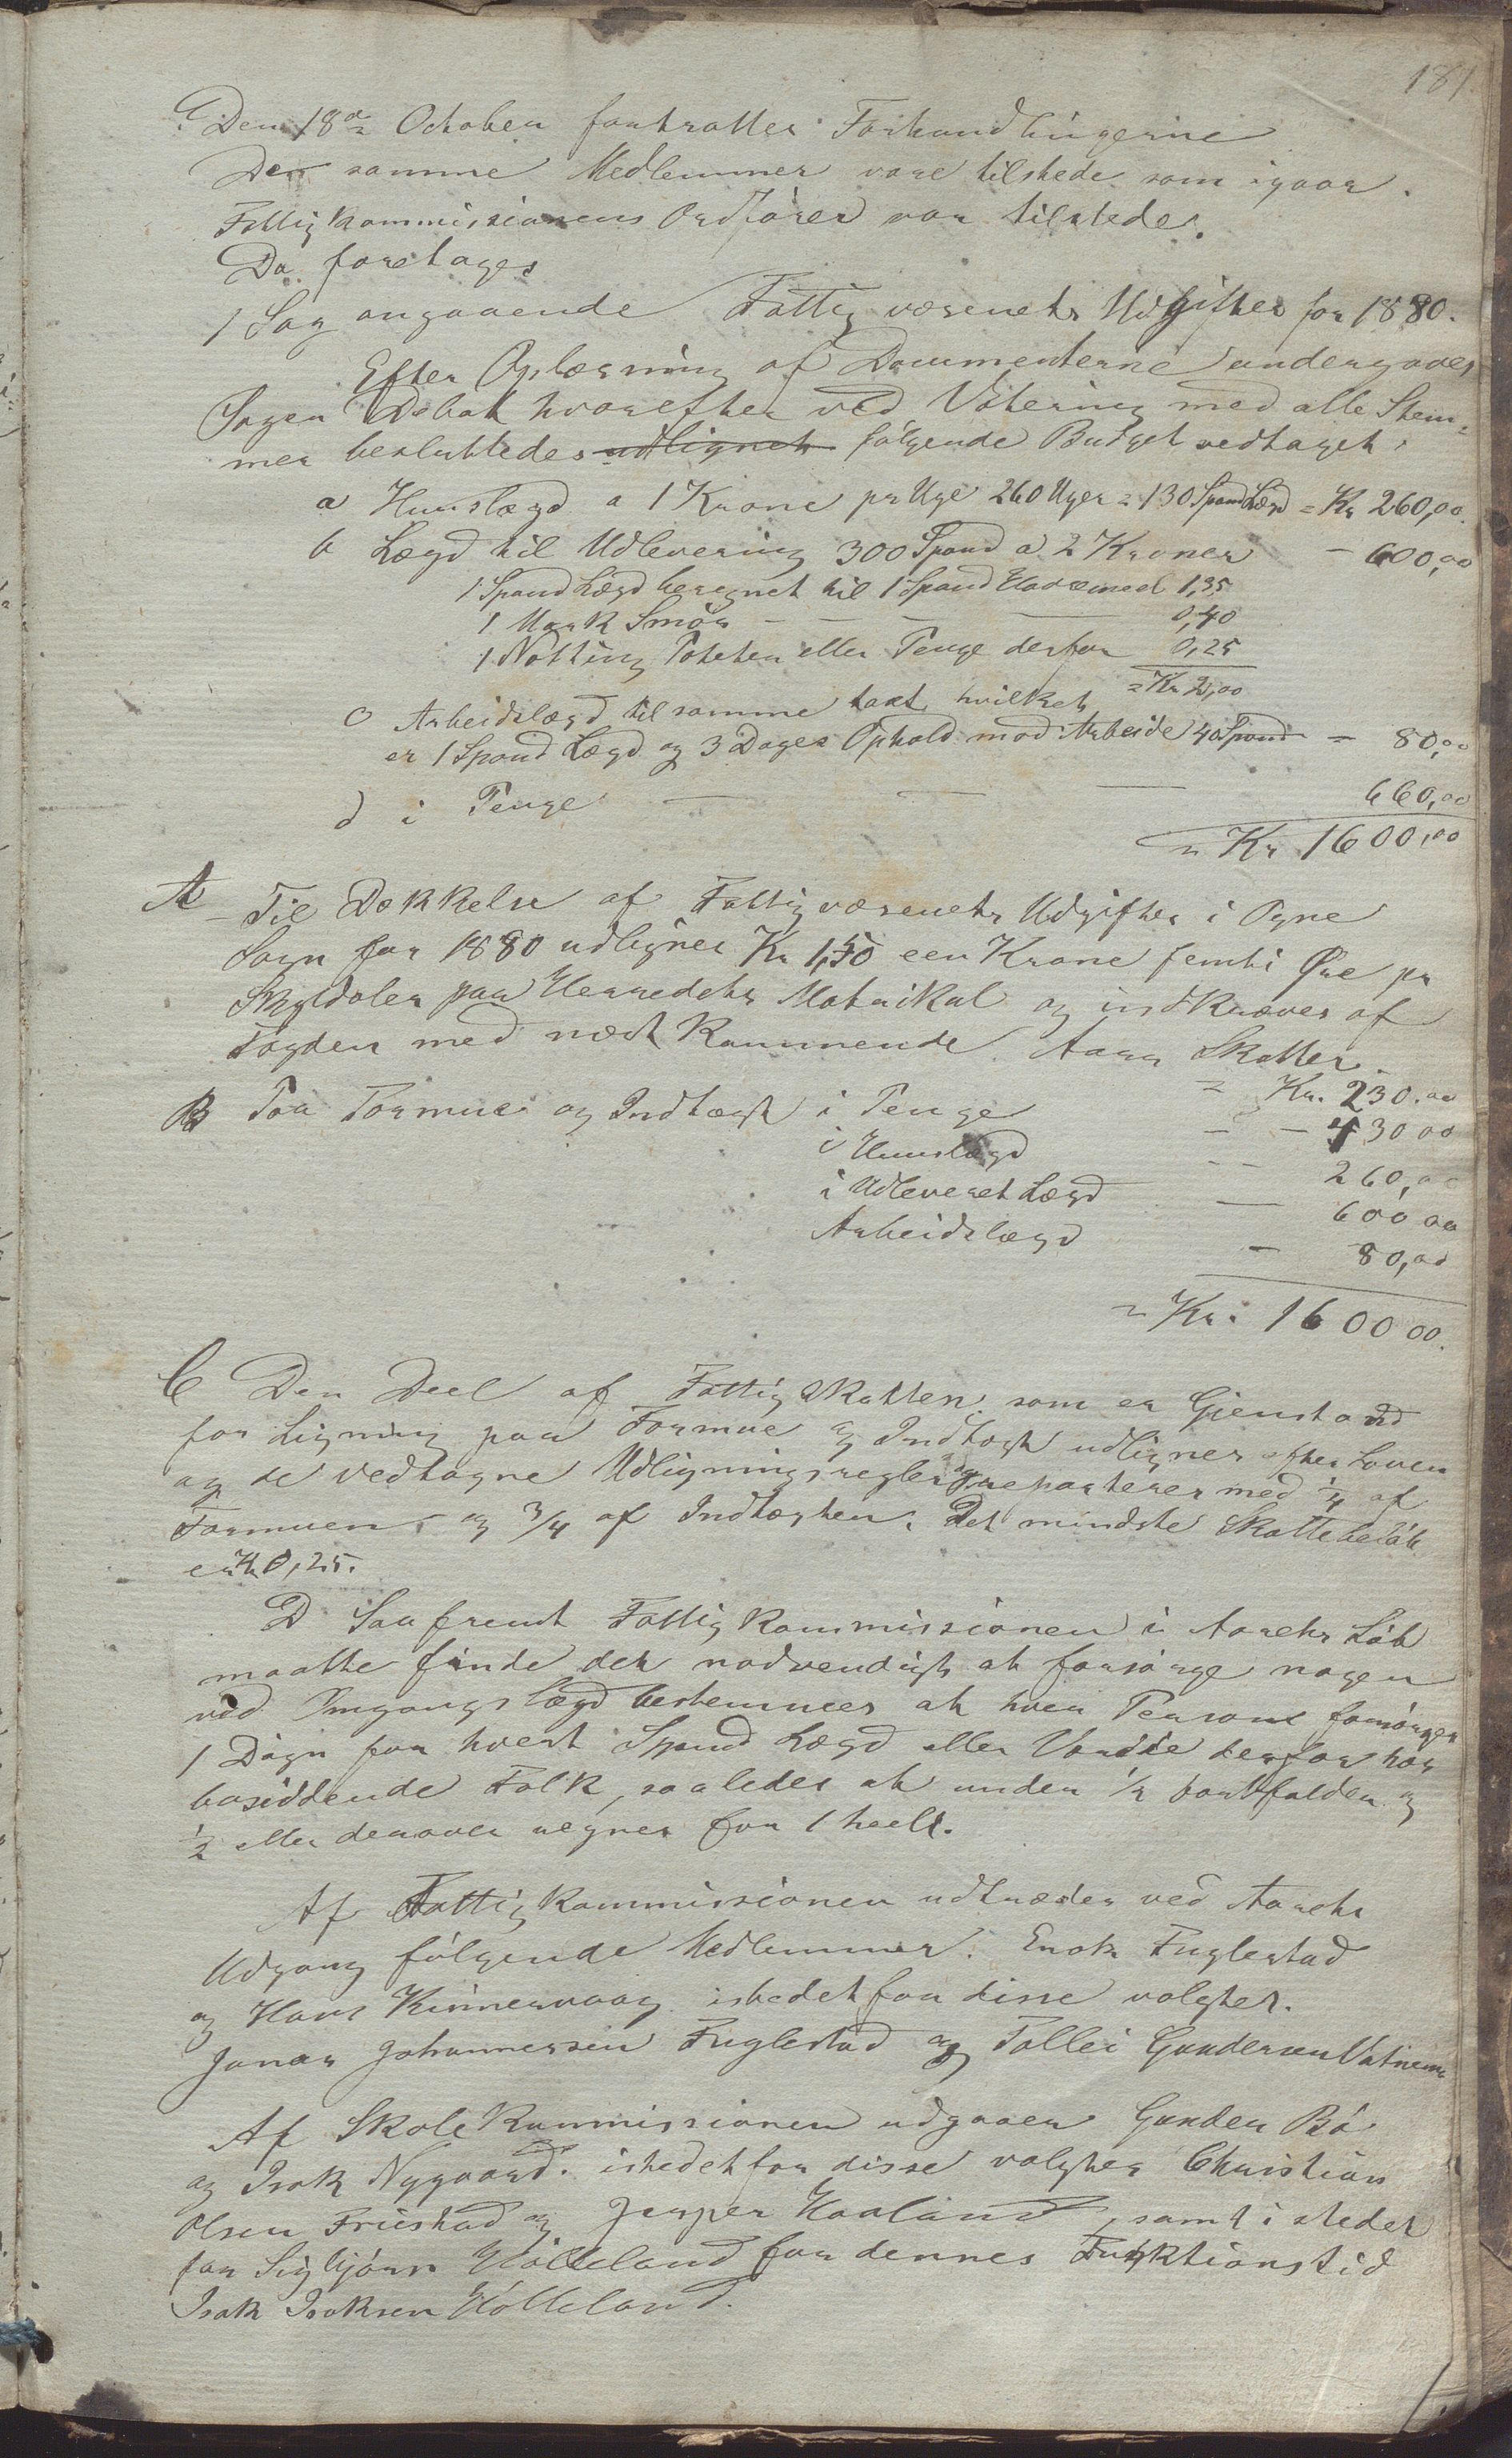 181.
Den 18de October fortsattes Forhandlingerne
De samme Medlemmer vare tilstede som igaar.
Fattigkommissionens Ordfører var tilstede.
Da foretages
1 Sag angaaende Fattigvæsenets Udgifter for 1880.
Efter Oplæsning af Documenterne undergaves
Sagen Debat hvorefter ved Votering med alle Stem-
mer besluttedes udlignet følgende Budget vedtaget:
a Huuslægd a 1 Krone pr Uge 260 Uger = 130 Spand Lægd = Kr 260,00.
b Lægd til Udlevering 300 Spand a 2 Kroner — 600,00
1 Spand Lægd beregnet til 1 Spand Havremeel 1,35
1 Mark Smør — — — 0,40
1 Notting Poteter eller Penge derfor 0,25
= Kr 2,00
c Arbeidslægd til samme taxt hvilket
er 1 Spand Lægd og 3 Dages Ophold mod Arbeide 40 Spand — 80,00
d i Penge — — — 660,00
= Kr 1600,00
A Til Dækkelse af Fattigvæsenets Udgifter i Ogne
Sogn for 1880 udlignes Kr 1,50 een Krone femti Øre pr
Skylddaler paa Herredets Matrikul og indkræves af
Fogden med næstkommende Aars Skatter.
= Kr. 230.00
B Paa Formue og Indtægt i Penge — — 430 00
i Huuslægd — — 260,00
i Udleveret Lægd — 600 00
Arbeidslægd — 80,00
= Kr. 1600 00.
C Den Deel af Fattigskatten som er Gjenstand
for Ligning paa Formue og Indtægt udlignes efter Loven
og de vedtagne Udligningsregler og reparteres med 1/4 af
Formuen og 3/4 af Indtægten. Det mindste Skattebeløb
er Kr 0,25.
D Saafremt Fattigkommissionen i Aarets Løb
maatte finde det nødvendigt at forsørge nogen
ved Omgangslægd bestemmes at hver Person forsørges
1 Døgn for hvert Spand Lægd eller Værdie derfor hos
bosiddende Folk, saaledes at under 1/2 bortfalder og
1/2 eller derover regnes for 1 heelt.
Af Fattigkommissionen udtræder ved Aarets
Udgang følgende Medlemmer. Enok Fuglestad
og Hans Kinnervaag istedetfor disse valgtes.
Jonas Johannessen Fuglestad og Tollei Gundersen Vatnemo
Af Skolekommissionen udgaaer Gunder Bø
og Isak Nygaard. istedetfor disse valgtes Christian
Olsen Friestad og Jesper Haaland, samt i stedet
for Sigbjørn Hølleland for dennes Funktionstid
Isak Isaksen Hølleland.